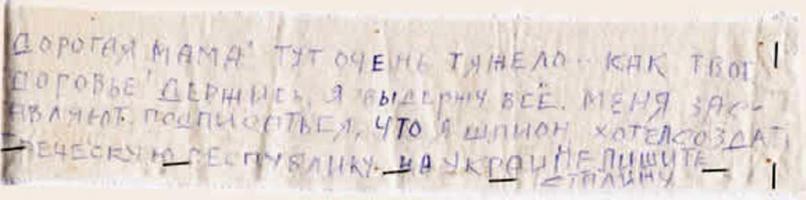 ДОРОГАЯ МАМА! ТУТ ОЧЕНЬ ТЯЖЕЛО. КАК ТВОЕ
ЗДОРОВЬЕ! ДЕРЖИСЬ, Я ВЫДЕРЖУ ВСЁ. МЕНЯ ЗАС-
АВЛЯЮТ. ПОДПИСАТЬСЯ, ЧТО Я ШПИОН ХОТЕЛ СОЗДАТЬ
ГРЕЧЕСКУЮ РЕСПУБЛИКУ НА УКРАИНЕ. ПИШИТЕ
СТАЛИНУ